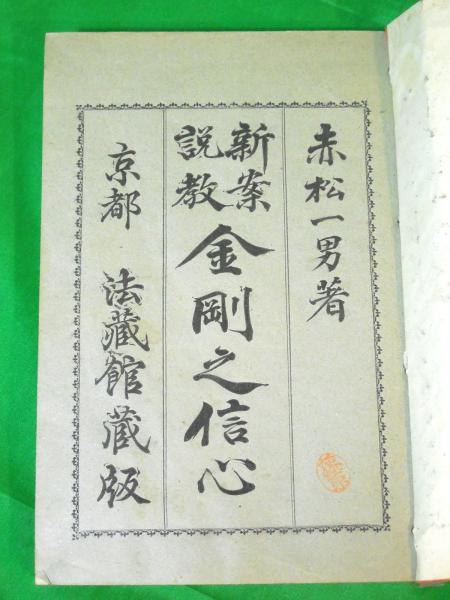 赤松一男著
新案
説教
金剛之信心
京都 法藏館蔵版